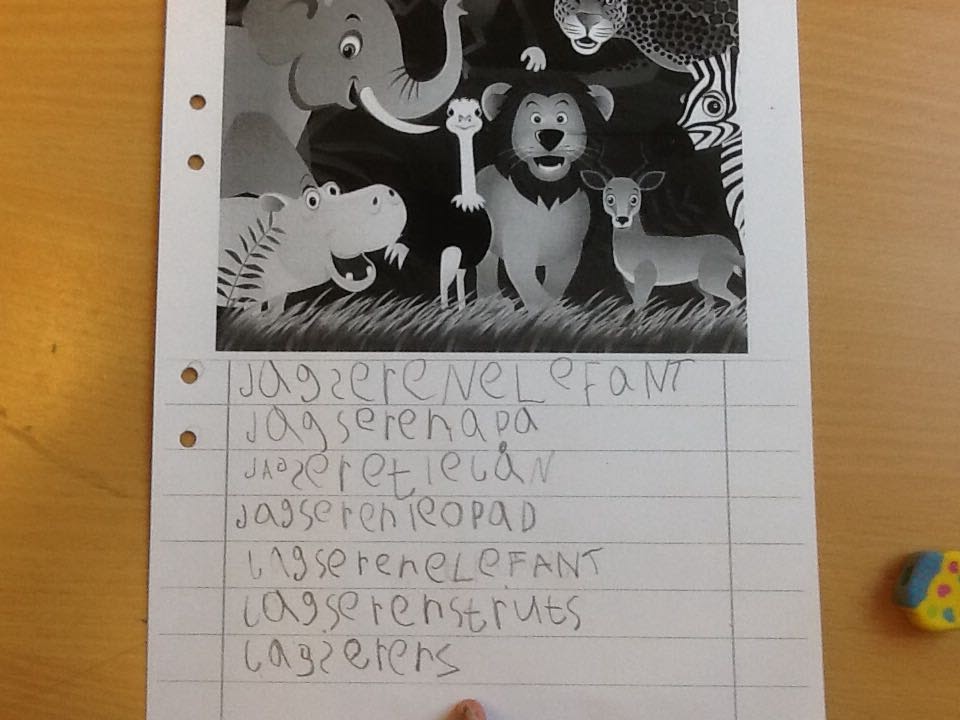 JagserENeLeFaNT
Jagserenapa
JAgseretlejåN
JagserenleopaD
JagsereneLeFANT
Jagserenstruts
Jagserens